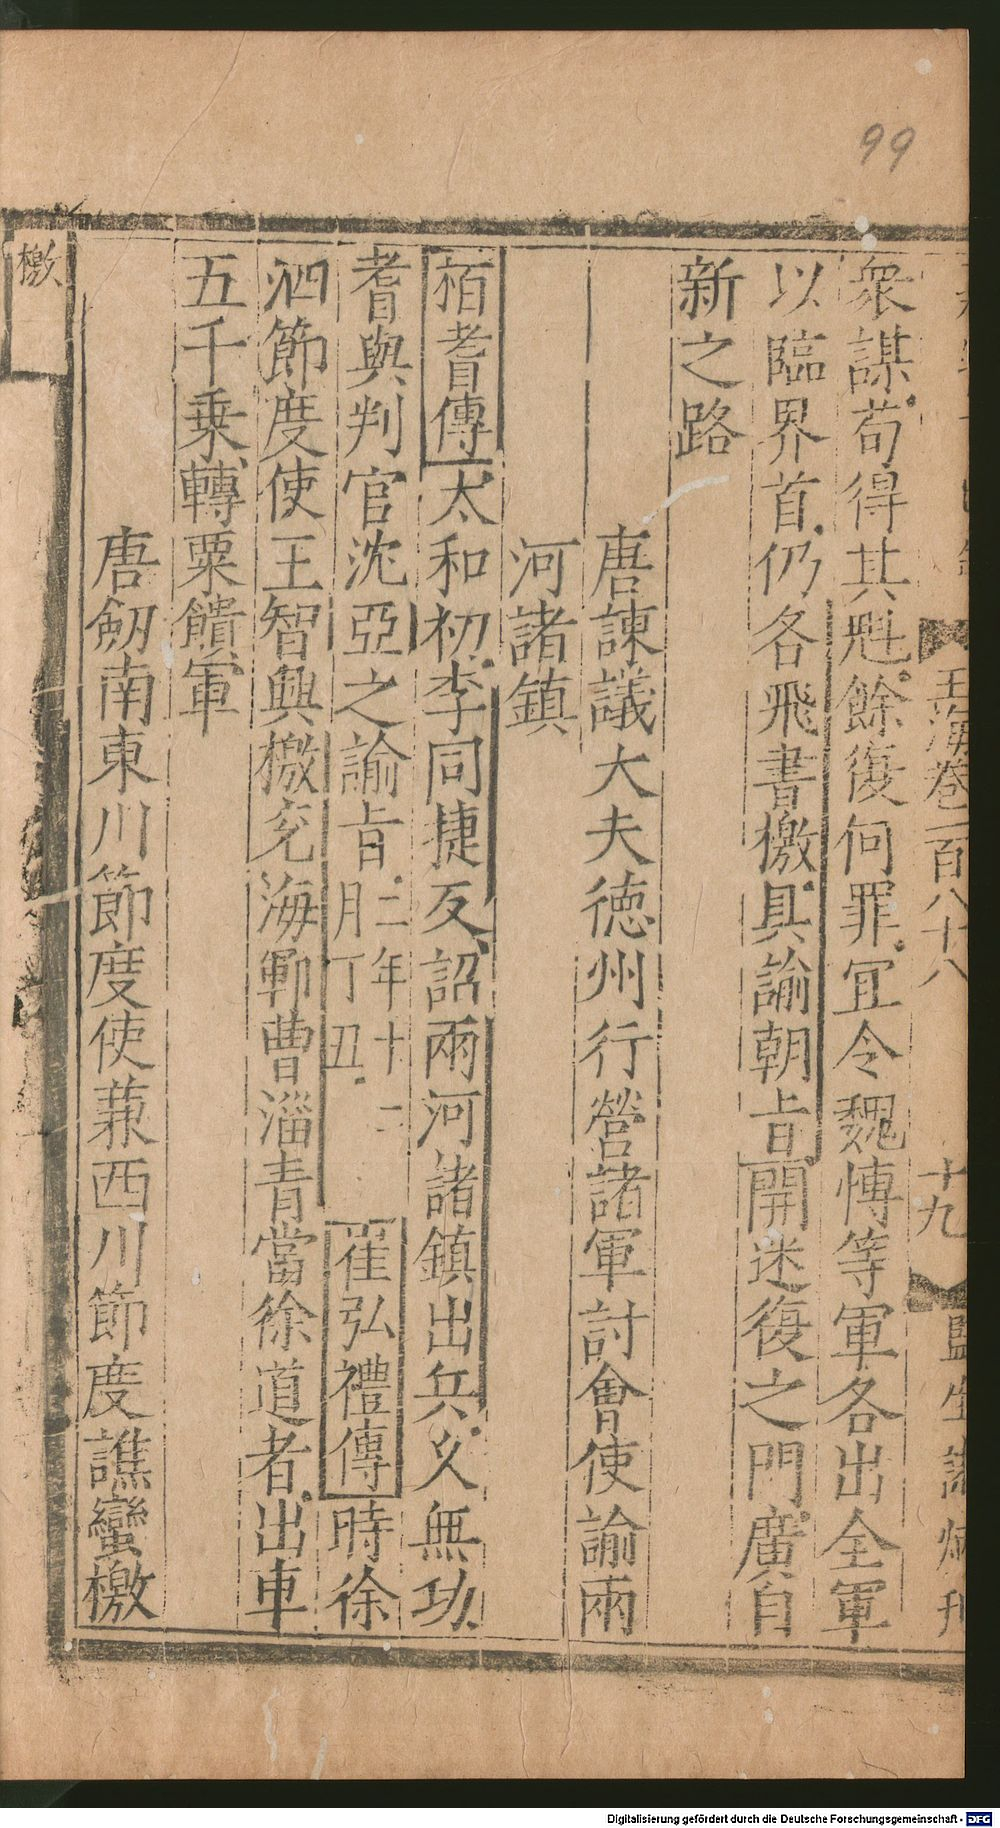 99
玉海卷一百八十八
十九
監生
衆謀苟得其魁餘復何罪冝令魏博等軍各出全軍
以臨界首仍各飛書檄具諭朝旨開迷復之門廣自
新之路
唐諫議大夫德州行營諸軍討會使諭兩
河諸鎮
栢耆傳太和初李同捷反詔兩河諸鎮出兵久無功
耆與判官沈亞之諭旨二年十二月丁丑崔弘禮傳時徐
泗節度使王智興檄兖海鄆曹淄青當徐道者出車
五千乗轉粟饋軍
唐劒南東川節度使蒹西川節度譙蠻檄
檄
Digitalisierung gefördert durch die Deutsche Forschungsgemeinschaft - DFG